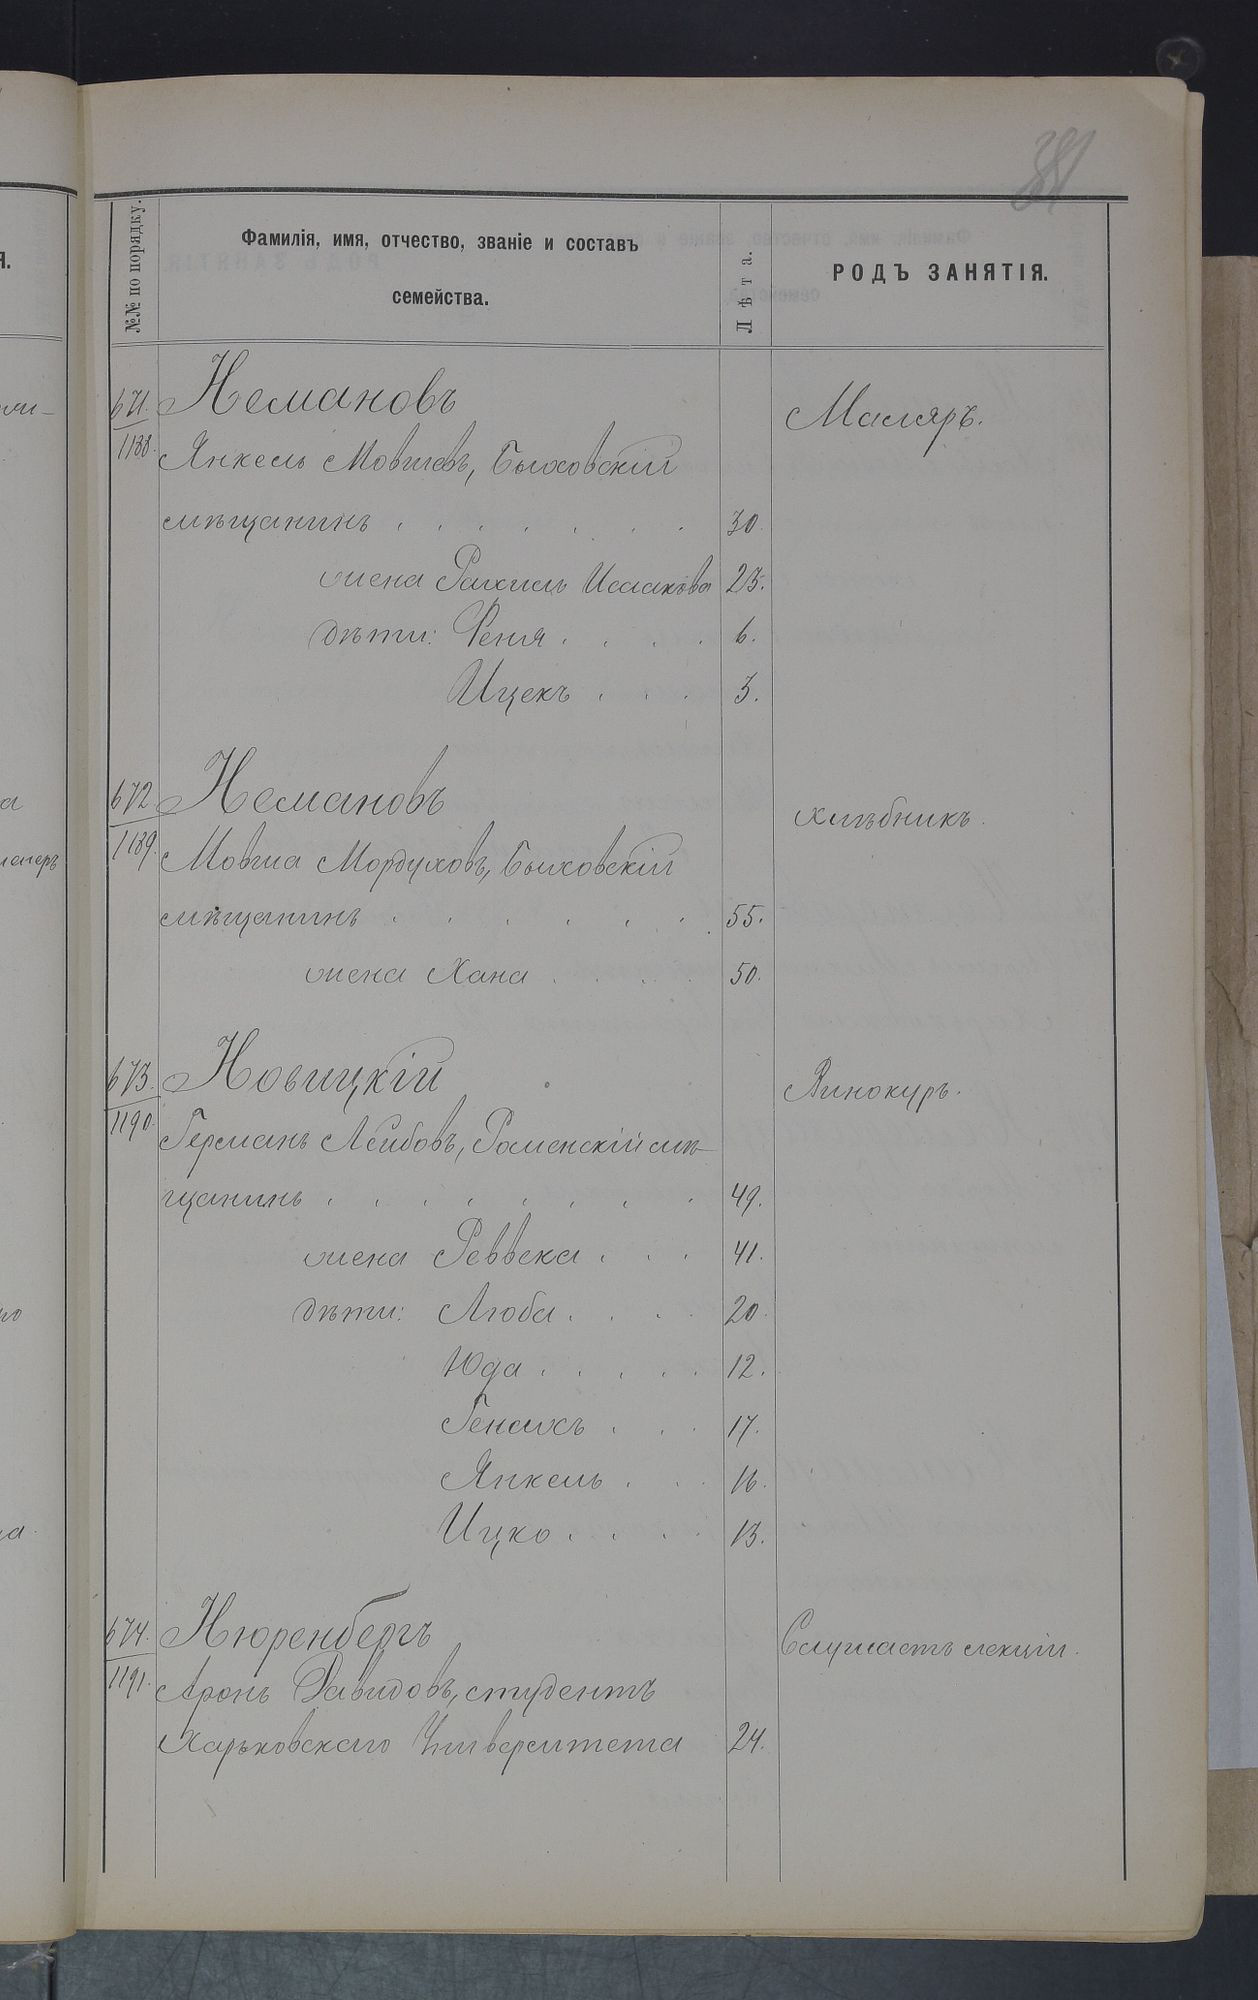 №№ по порядку.
Фамилія, имя, отчество, званіе и составъ
семейства.
Лѣта.
РОДЪ ЗАНЯТІЯ.
671. Немановъ
Маляръ.
1188. Янкель Мовшевъ, Быховскій
мѣщанинъ . . . . . . . 30.
жена Рахиль Исаакова 25.
дѣти: Феня . . . . 6.
Ицекъ . . . 3.
672 Немановъ
хлѣбникъ.
1189. Мовша Мордуховъ, Быховскій
мѣщанинъ . . . . . . 55.
жена Хана . . . . 50.
673. Новицкій
Винокуръ.
1190. Германъ Лейбовъ, Роменскій мѣ-
щанинъ . . . . . . . . 49.
жена Реввека . . . 41.
дѣти: Люба . . . . 20.
Юда . . . . . 12.
Генахъ . . . 17.
Янкель . . . 16.
Ицко . . . . 13.
674. Нюренбергъ
Слушаетъ лекціи.
1191. Аронъ Давидовъ, студентъ
Харьковскаго Университета 24.